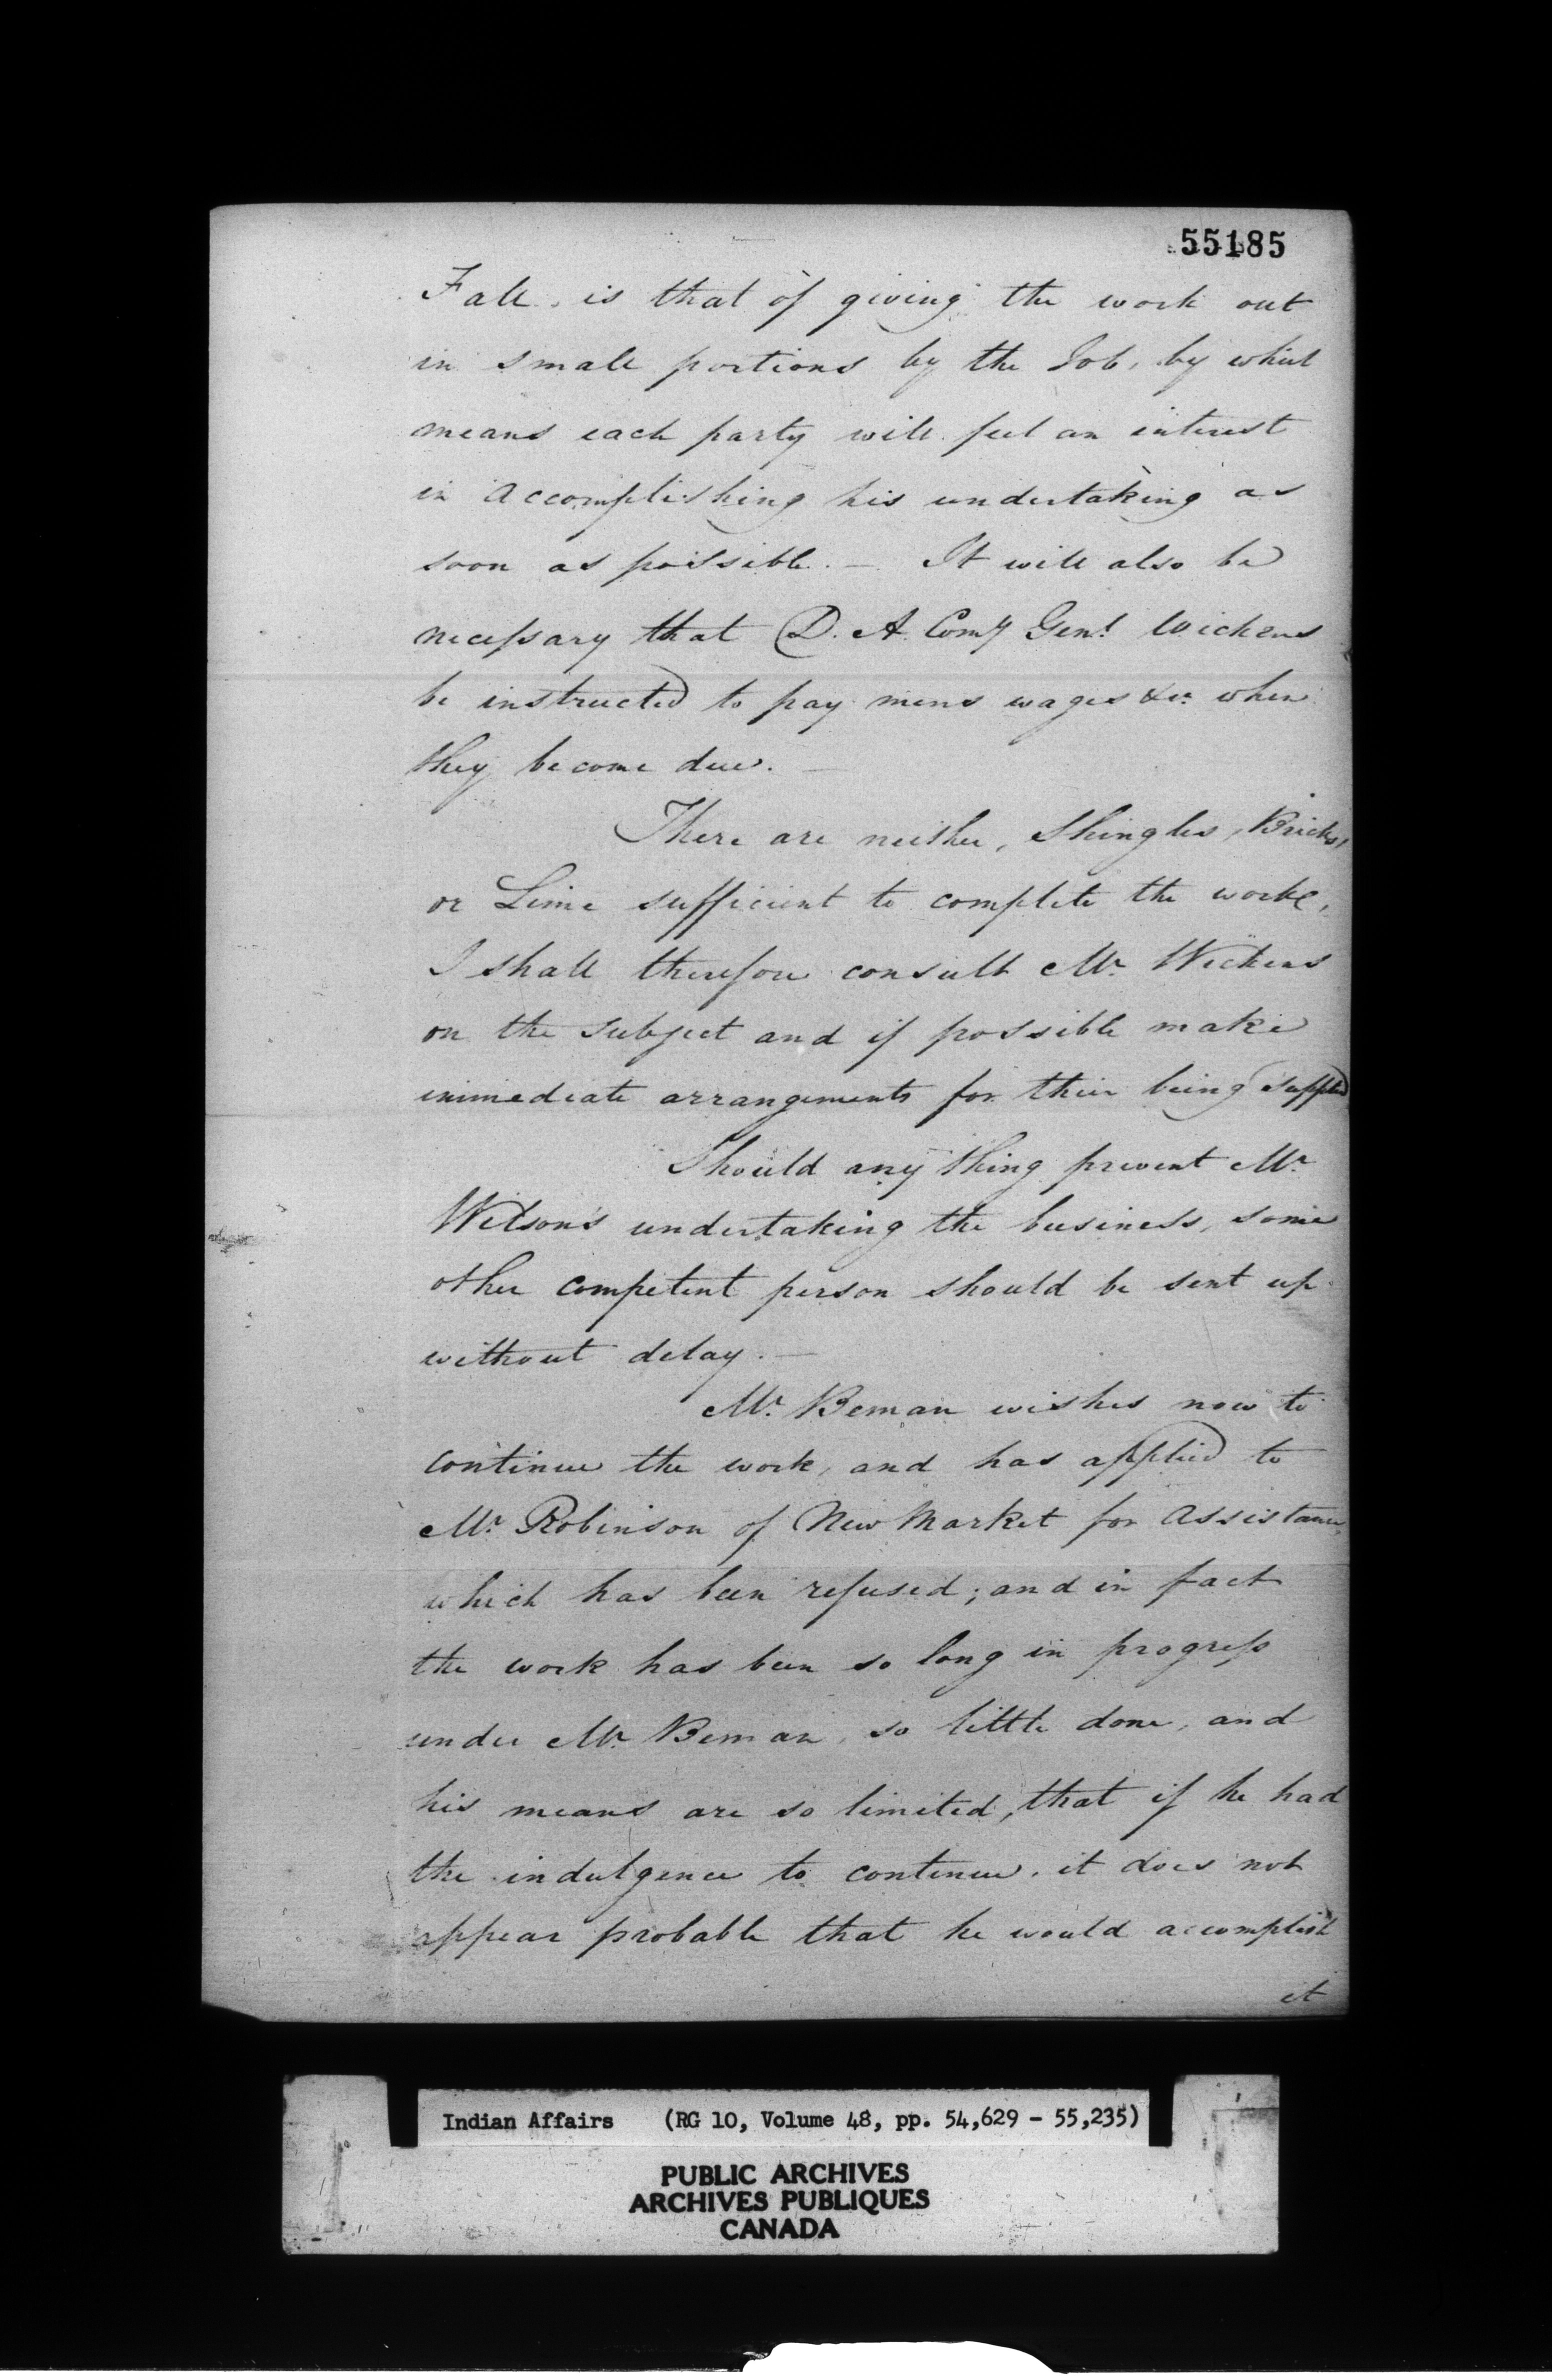 55185
Fall, is that of giving the work out
in small portions by the Job, by which
means each party will feel an interest
in Accomplishing his undertaking as
soon as possible. — It will also be
necessary that D. A. Comy Genl. Wickens
be instructed to pay mens wages &c. when
they become due. —
There are neither, Shingles, Bricks,
or Lime sufficient to complete the work,
I shall therefore consult Mr. Wickens
on the subject and if possible make
immediate arrangements for their being supplied
Should any thing prevent Mr.
Wilson's undertaking the business, some
other competent person should be sent up
without delay. —
Mr. Beman wishes now to
continue the work, and has applied to
Mr. Robinson of New Market for Assistance,
which has been refused; and in fact
the work has been so long in progress
under Mr. Beman, so little done, and
his means are so limited, that if he had
the indulgence to continue, it does not
appear probable that he would accomplish
it
Indian Affairs (RG 10, Volume 48, pp. 54,629 - 55,235)
PUBLIC ARCHIVES
ARCHIVES PUBLIQUES
CANADA